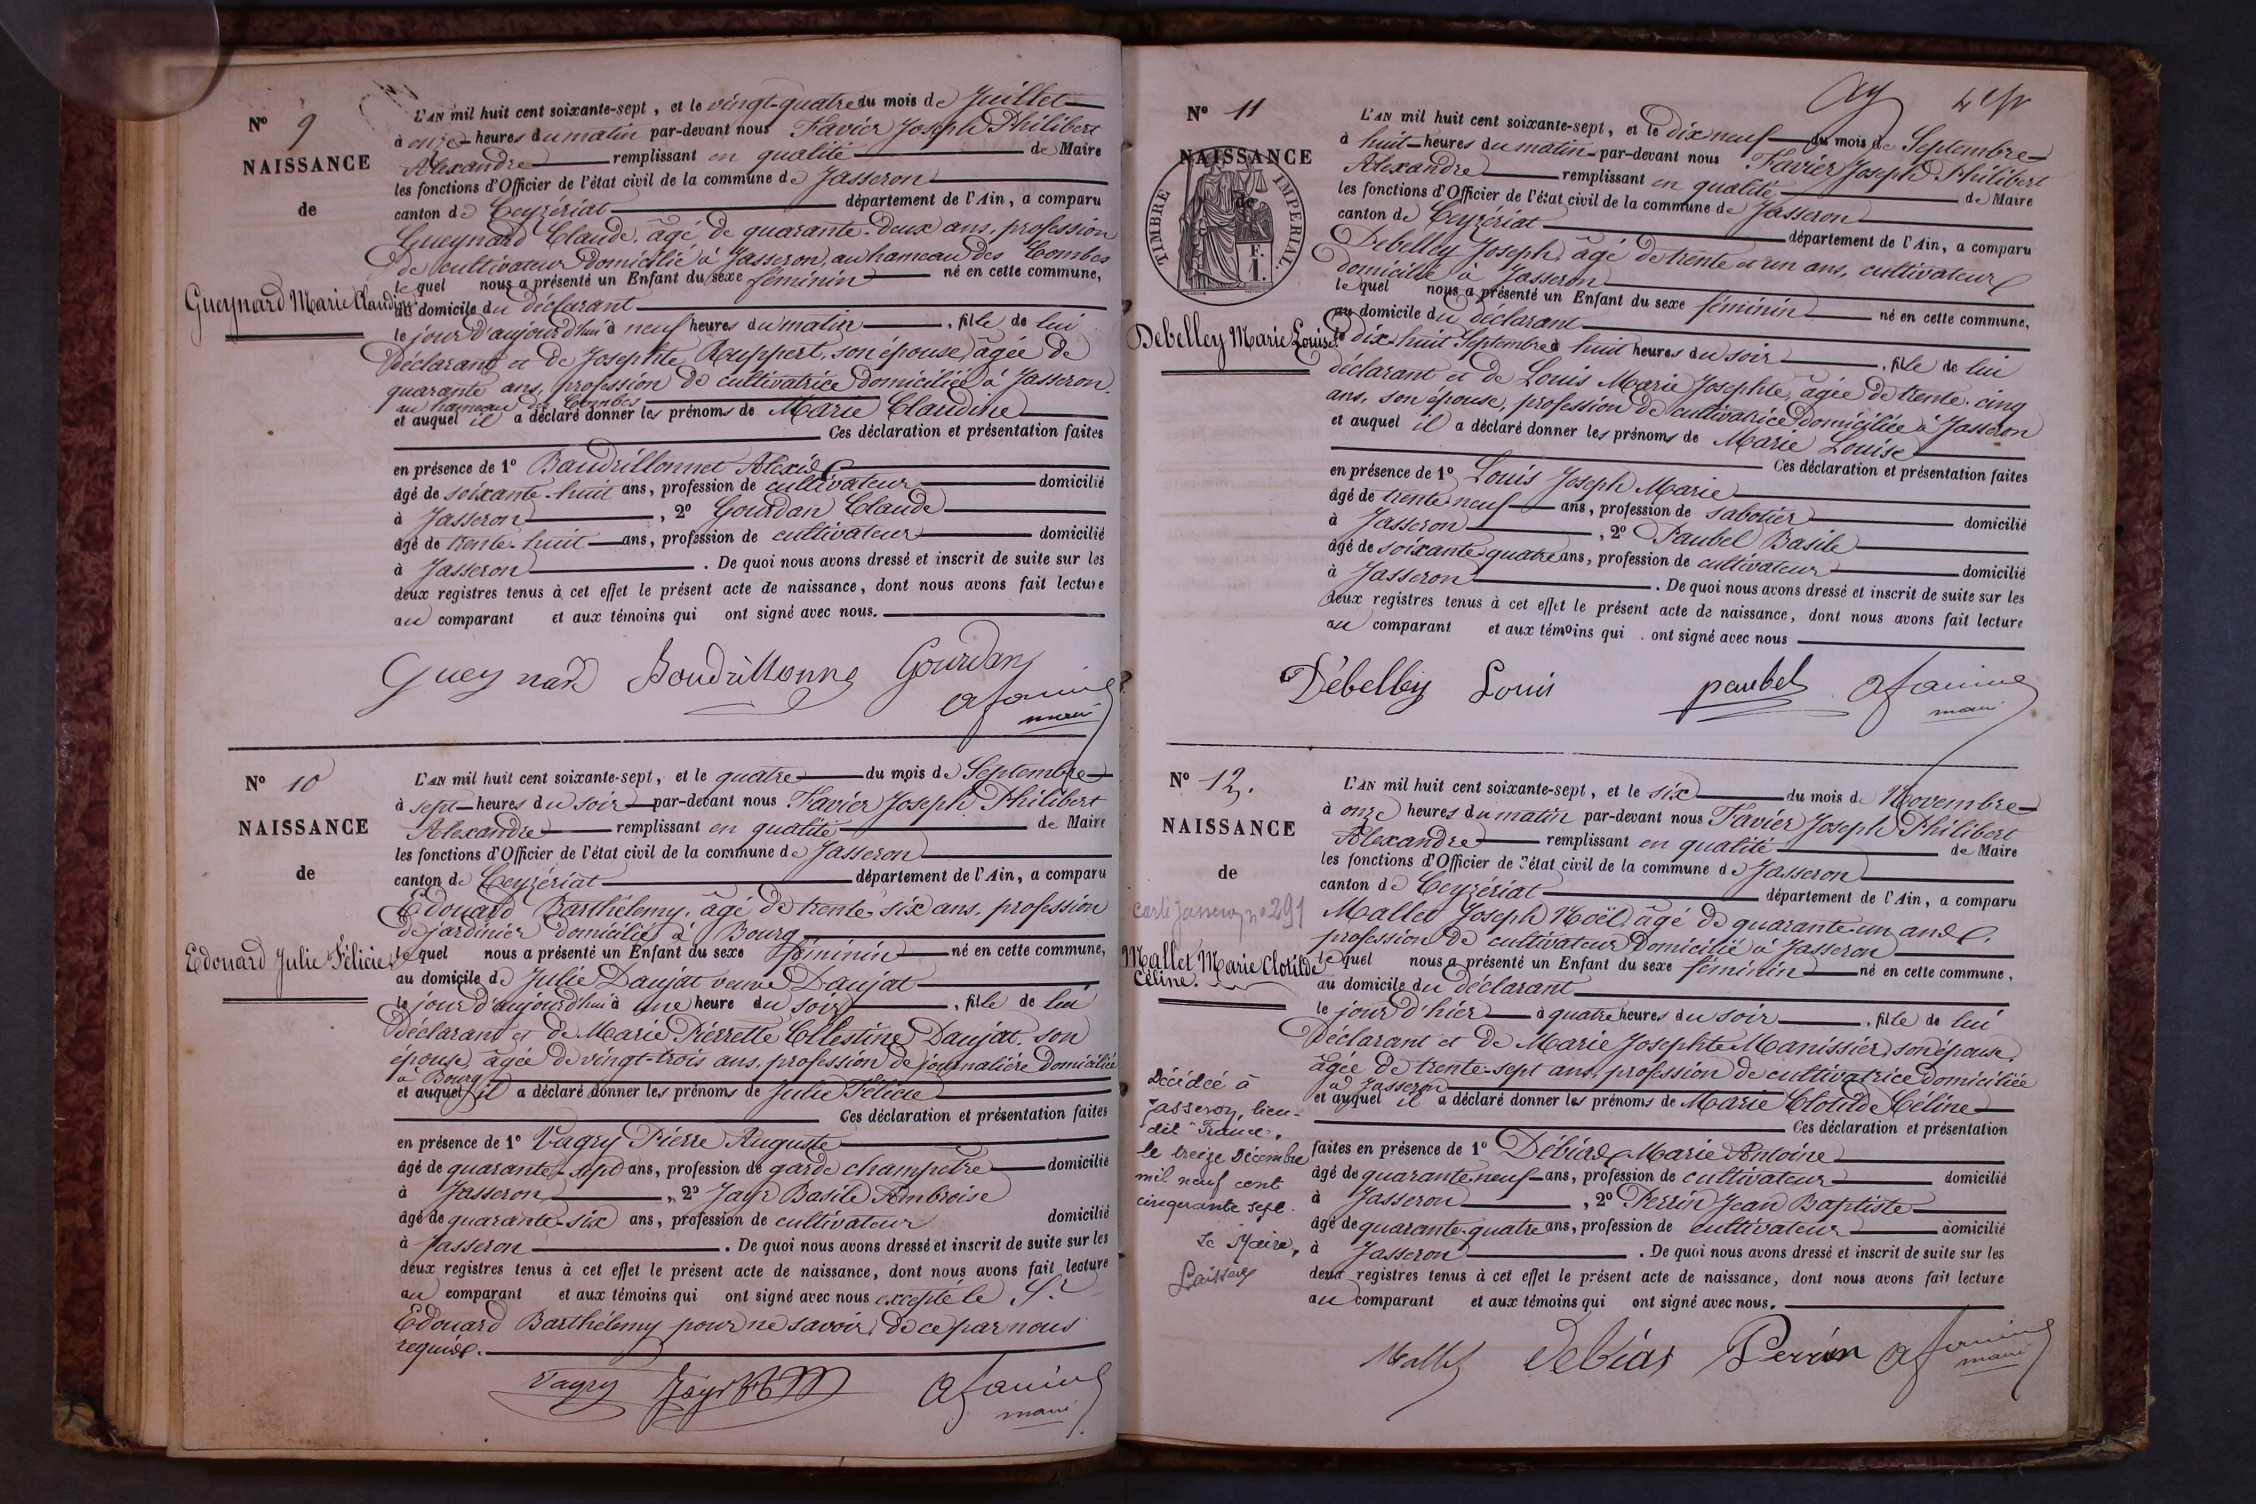 N° 9
NAISSANCE
de
Gueynard Marie Claudine
L'AN mil huit cent soixante-sept, et le vingt-quatre du mois de Juillet
à onze heures du matin par-devant nous Favier Joseph Philibert
Alexandre remplissant en qualité de Maire
les fonctions d'Officier de l'état civil de la commune de Jasseron
canton de Ceyzériat département de l'Ain, a comparu
Gueynard Claude, âgé de quarante-deux ans, profession
de cultivateur domicilié à Jasseron, au hameau des Combes
le quel nous a présenté un Enfant du sexe féminin né en cette commune,
au domicile du déclarant
le jour d'aujourd'hui à neuf heures du matin, fille de lui
déclarant et de Josephte Rouppert, son épouse, âgée de
quarante ans, profession de cultivatrice domiciliée à Jasseron
au hameau des Combes
et auquel il a déclaré donner les prénoms de Marie Claudine
Ces déclaration et présentation faites
en présence de 1° Baudrillonnet Alexis
âgé de soixante-huit ans, profession de cultivateur domicilié
à Jasseron, 2° Gourdan Claude
âgé de trente-huit ans, profession de cultivateur domicilié
à Jasseron. De quoi nous avons dressé et inscrit de suite sur les
deux registres tenus à cet effet le présent acte de naissance, dont nous avons fait lecture
au comparant et aux témoins qui ont signé avec nous.
Gueynard Gourdan
maire
N° 10
NAISSANCE
de
Edouard Julie Félicie
L'AN mil huit cent soixante-sept, et le quatre du mois de Septembre
à sept heures du soir par-devant nous Favier Joseph Philibert
Alexandre remplissant en qualité de Maire
les fonctions d'Officier de l'état civil de la commune de Jasseron
canton de Ceyzériat département de l'Ain, a comparu
Edouard Barthélemy, âgé de trente-six ans, profession
de jardinier domicilié à Bourg
le quel nous a présenté un Enfant du sexe féminin né en cette commune,
au domicile de Julie Daujat veuve Daujat
le jour d'aujourd'hui à une heure du soir, fille de lui
déclarant et de Marie Pierrette Célestine Daujat, son
épouse, âgée de vingt-trois ans, profession de journalière domiciliée
à Bourg
et auquel il a déclaré donner les prénoms de Julie Félicie
Ces déclaration et présentation faites
en présence de 1° Vagry Pierre Auguste
âgé de quarante-sept ans, profession de garde champêtre domicilié
à Jasseron, 2° Jayr Basile Ambroise
âgé de quarante-six ans, profession de cultivateur domicilié
à Jasseron. De quoi nous avons dressé et inscrit de suite sur les
deux registres tenus à cet effet le présent acte de naissance, dont nous avons fait lecture
au comparant et aux témoins qui ont signé avec nous excepté le Sr
Edouard Barthélemy pour ne savoir, de ce par nous
requis.
Vagry
maire
N° 11
NAISSANCE
de
TIMBRE IMPERIAL
Debelley Marie Louise
L'AN mil huit cent soixante-sept, et le dix neuf du mois de Septembre
à huit heures du matin par-devant nous Favier Joseph Philibert
Alexandre remplissant en qualité de Maire
les fonctions d'Officier de l'état civil de la commune de Jasseron
canton de Ceyzériat département de l'Ain, a comparu
Debelley Joseph, âgé de trente et un ans, cultivateur
domicilié à Jasseron
le quel nous a présenté un Enfant du sexe féminin né en cette commune,
au domicile du déclarant
le dix-huit Septembre à huit heures du soir, fille de lui
déclarant et de Louis Marie Josephte, âgée de trente-cinq
ans, son épouse, profession de cultivatrice domiciliée à Jasseron
et auquel il a déclaré donner les prénoms de Marie Louise
Ces déclaration et présentation faites
en présence de 1° Louis Joseph Marie
âgé de trente-neuf ans, profession de sabotier domicilié
à Jasseron, 2° Paubel Basile
âgé de soixante-quatre ans, profession de cultivateur domicilié
à Jasseron. De quoi nous avons dressé et inscrit de suite sur les
deux registres tenus à cet effet le présent acte de naissance, dont nous avons fait lecture
au comparant et aux témoins qui ont signé avec nous
Débelley Louis paubel
maire
N° 12.
NAISSANCE
de
carte Jasseron n° 291
Mallet Marie Clotilde
Céline.
Décédée à
Jasseron, lieu-
dit "France",
le treize Décembre
mil neuf cent
cinquante sept.
Le Maire,
L'AN mil huit cent soixante-sept, et le six du mois de Novembre
à onze heures du matin par-devant nous Favier Joseph Philibert
Alexandre remplissant en qualité de Maire
les fonctions d'Officier de l'état civil de la commune de Jasseron
canton de Ceyzériat département de l'Ain, a comparu
Mallet Joseph Noël, âgé de quarante-un ans,
profession de cultivateur domicilié à Jasseron
le quel nous a présenté un Enfant du sexe féminin né en cette commune,
au domicile du déclarant
le jour d'hier à quatre heures du soir, fille de lui
déclarant et de Marie Josephte Manissier, son épouse,
âgée de trente-sept ans, profession de cultivatrice domiciliée
à Jasseron
et auquel il a déclaré donner les prénoms de Marie Clotilde Céline
Ces déclaration et présentation
faites en présence de 1° Débiad Marie Antoine
âgé de quarante neuf ans, profession de cultivateur domicilié
à Jasseron, 2° Perrin Jean Baptiste
âgé de quarante-quatre ans, profession de cultivateur domicilié
à Jasseron. De quoi nous avons dressé et inscrit de suite sur les
deux registres tenus à cet effet le présent acte de naissance, dont nous avons fait lecture
au comparant et aux témoins qui ont signé avec nous.
Mallet Perrin
maire